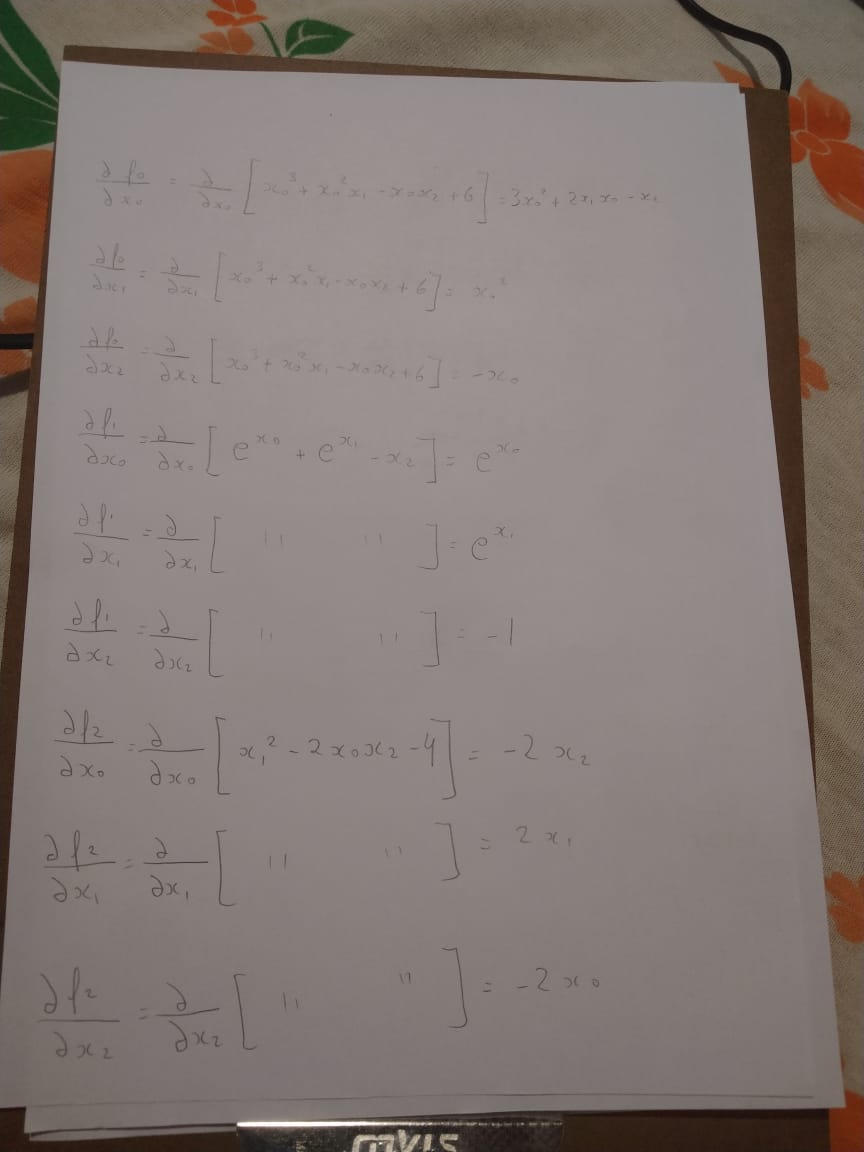 ∂f₀/∂x₀ = ∂/∂x₀ [x₀³ + x₀²x₁ - x₀x₂ + 6] = 3x₀² + 2x₁x₀ - x₂
∂f₀/∂x₁ = ∂/∂x₁ [x₀³ + x₀²x₁ - x₀x₂ + 6] = x₀²
∂f₀/∂x₂ = ∂/∂x₂ [x₀³ + x₀²x₁ - x₀x₂ + 6] = -x₀
∂f₁/∂x₀ = ∂/∂x₀ [e^x₀ + e^x₁ - x₂] = e^x₀
∂f₁/∂x₁ = ∂/∂x₁ [ " " ] = e^x₁
∂f₁/∂x₂ = ∂/∂x₂ [ " " ] = -1
∂f₂/∂x₀ = ∂/∂x₀ [x₁² - 2x₀x₂ - 4] = -2x₂
∂f₂/∂x₁ = ∂/∂x₁ [ " " ] = 2x₁
∂f₂/∂x₂ = ∂/∂x₂ [ " " ] = -2x₀